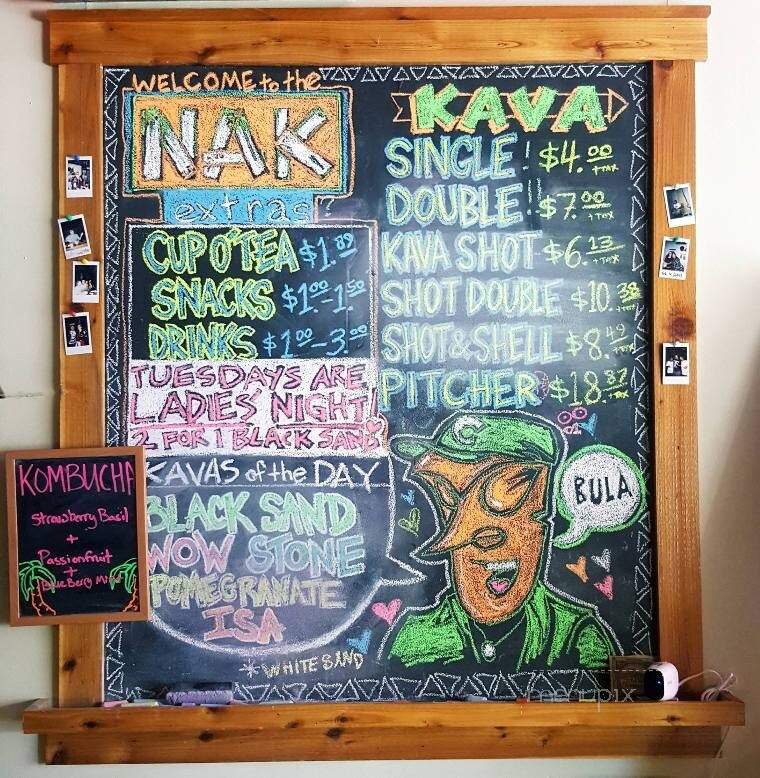 WELCOME to the
NAK
extras?
CUP O' TEA $1.89
SNACKS $1.00-1.50
DRINKS $1.00-3.00
TUESDAYS ARE
LADIES' NIGHT!
2 FOR 1 BLACK SAND
KAVAS of the DAY
BLACK SAND
WOW STONE
POMEGRANATE
ISA
*WHITE SAND
KAVA
SINGLE! $4.00 +TAX
DOUBLE!! $7.00 +TAX
KAVA SHOT $6.13 +TAX
SHOT DOUBLE $10.38 +TAX
SHOT & SHELL $8.49 +TAX
PITCHER $18.87 +TAX
C
BULA
KOMBUCHA
Strawberry Basil
+
Passionfruit
+
BlueBerry Mint
menupix